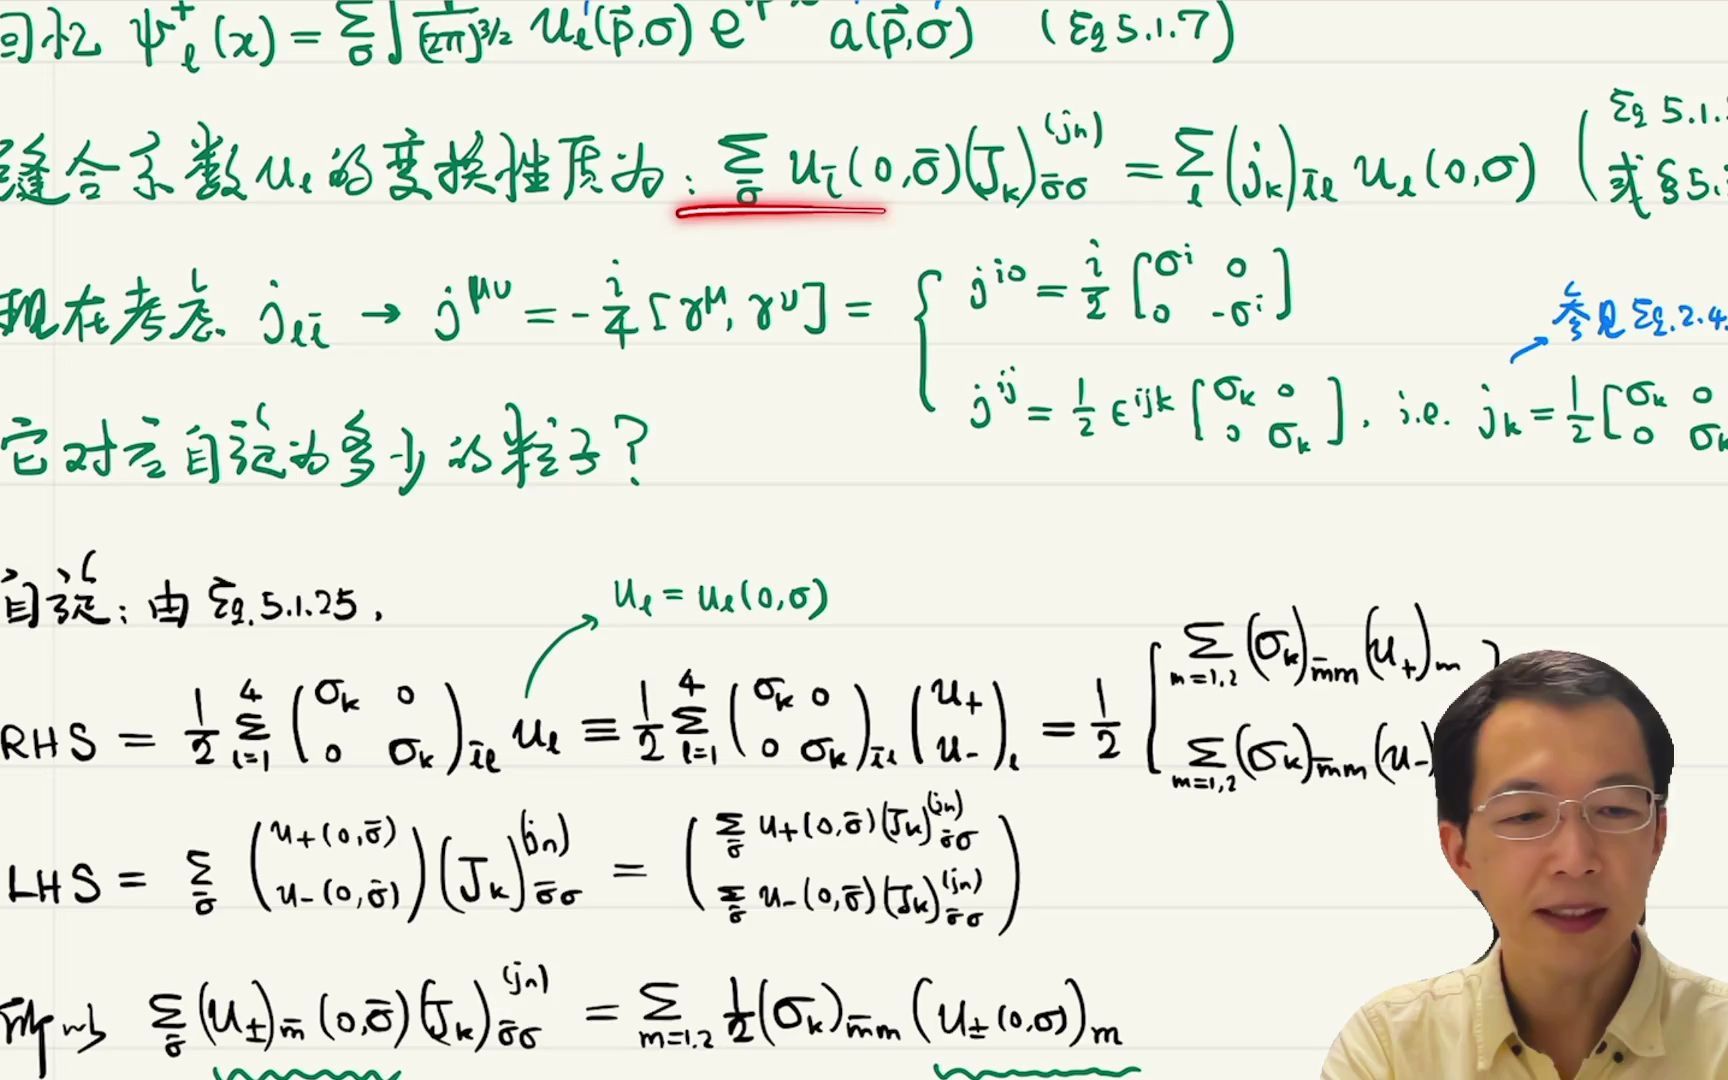 回忆 ψ⁺_ℓ(x) = Σ_σ ∫ 1/(2π)^{3/2} u_ℓ(p⃗,σ) e a(p⃗,σ) (Eq 5.1.7)
缝合系数 u_ℓ 的变换性质为: Σ_σ̄ u_ℓ̄(0,σ̄)(J_k)^{(jn)}_{σ̄σ} = Σ_ℓ (j_k)_{ℓ̄ℓ} u_ℓ(0,σ) ( Eq 5.1. 或 §5.
现在考虑 j_{ℓℓ̄} → j^{μν} = -i/4 [γ^μ, γ^ν] = { j^{i0} = i/2 [σ^i 0 0 -σ^i]
参见 Eq.2.4.
j^{ij} = 1/2 ε^{ijk} [σ_k 0 0 σ_k], i.e. j_k = 1/2 [σ_k 0 0 σ_k
它对应自旋为多少的粒子?
自旋: 由 Eq. 5.1.25,
u_ℓ = u_ℓ(0,σ)
RHS = 1/2 Σ_{l=1}^4 (σ_k 0 0 σ_k)_{ℓ̄ℓ} u_ℓ ≡ 1/2 Σ_{l=1}^4 (σ_k 0 0 σ_k)_{ℓ̄ℓ} (u_+ u_-)_ℓ = 1/2 [Σ_{m=1,2} (σ_k)_{m̄m} (u_+)_m Σ_{m=1,2} (σ_k)_{m̄m} (u_-)
LHS = Σ_σ̄ (u_+(0,σ̄) u_-(0,σ̄)) (J_k)^{(jn)}_{σ̄σ} = (Σ_σ̄ u_+(0,σ̄)(J_k)^{(jn)}_{σ̄σ} Σ_σ̄ u_-(0,σ̄)(J_k)^{(jn)}_{σ̄σ})
所以 Σ_σ̄ (u_±)_m̄ (0,σ̄)(J_k)^{(jn)}_{σ̄σ} = Σ_{m=1,2} 1/2 (σ_k)_{m̄m} (u_±(0,σ))_m